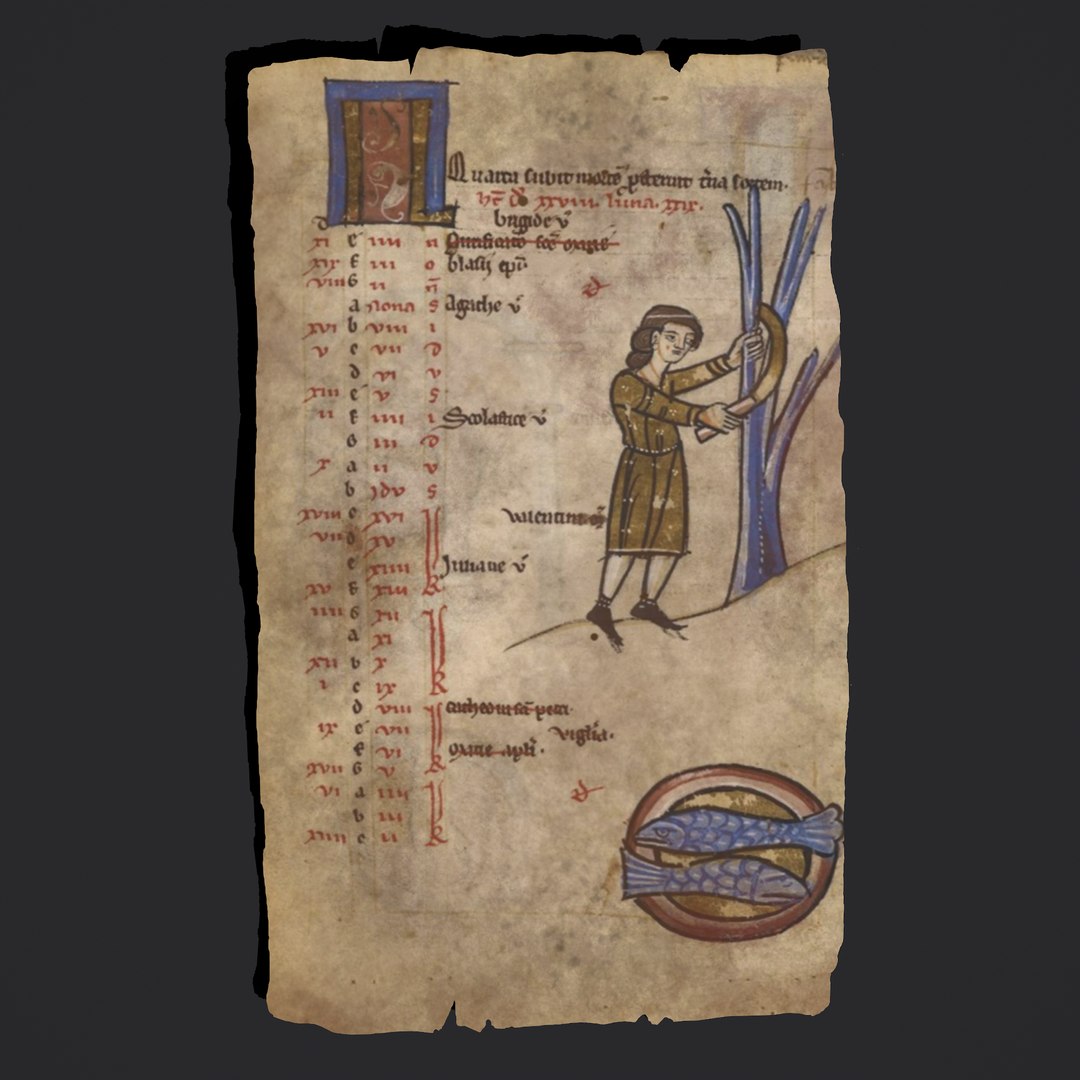 Quarta subit mortē pſternit tcia fortem.
hc̄ dˢ xxviii. luna. xxix.
d brigide v̄
xi e iiii n Purificatio sce marie
xix f iii o blasij epi
viii G ii n̄
a nona s Agathe v̄
xvi b viii i
v c vii D
d vi v
xiii e v S
ii f iiii i Scolastice v̄
G iii D
x a ii v
b idv s
xviii c xvi valentini
vii d xv
e xiiii Juliane v̄
xv f xiii k
iiii G xii
a xi
xii b x
i c ix k
d viii cathedra sc̄i petri.
ix e vii vigilia.
f vi k matie apli.
xvii G v
vi a iiii
b iii
xiiii c ii k